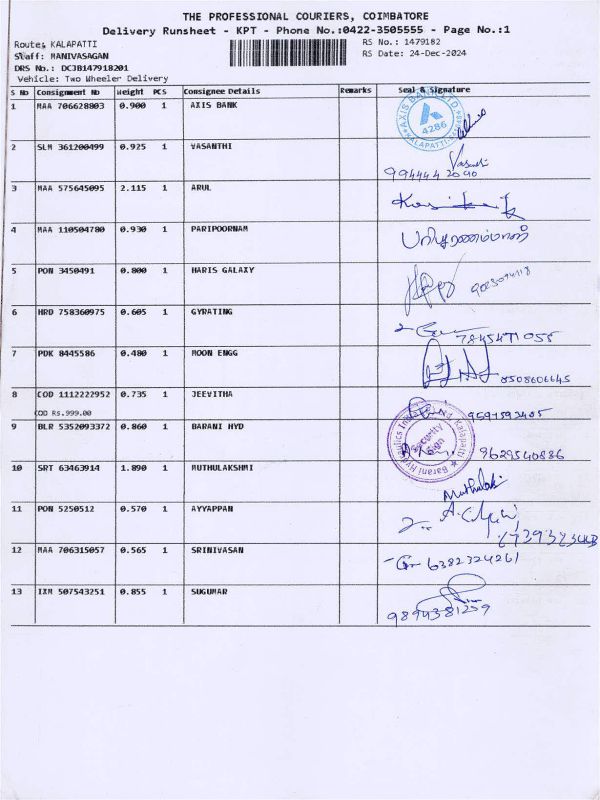 THE PROFESSIONAL COURIERS, COIMBATORE
Delivery Runsheet - KPT - Phone No.:0422-3505555 - Page No.:1
Route: KALAPATTI RS No.: 1479182
Staff: MANIVASAGAN RS Date: 24-Dec-2024
DRS No.: DCJB147918201
Vehicle: Two Wheeler Delivery
S No Consignment No Weight PCS Consignee Details Remarks Seal & Signature
1 MAA 706628803 0.900 1 AXIS BANK
AXIS BANK LTD
4286
KALAPATTI
2 SLM 361200499 0.925 1 VASANTHI
Vasanthi
994444 2090
3 MAA 575645095 2.115 1 ARUL
4 MAA 110504780 0.930 1 PARIPOORNAM
5 PON 3450491 0.800 1 HARIS GALAXY
6 HRD 758360975 0.605 1 GYRATING
7845471055
7 PDK 8445586 0.480 1 MOON ENGG
8508606645
8 COD 1112222952 0.735 1 JEEVITHA
COD Rs.999.00
9591592405
9 BLR 5352093372 0.860 1 BARANI HYD
Barani Hydraulics India Kalapatti
Security
Sign
9629540886
10 SRT 63463914 1.890 1 MUTHULAKSHMI
Muthulaksh
11 PON 5250512 0.570 1 AYYAPPAN
12 MAA 706315057 0.565 1 SRINIVASAN
6382324261
13 IXM 507543251 0.855 1 SUGUMAR
9894381259